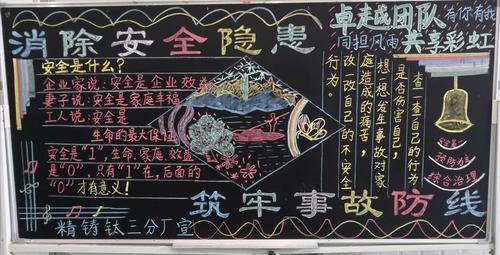 消除安全隐患
卓越战团队 有你有我
同担风雨 共享彩虹
安全是什么?
企业家说:安全是企业效益
妻子说:安全是家庭幸福
工人说:安全是
生命的最大保证
安全是"1",生命、家庭、效益
是"0",只有"1"在,后面的
"0"才有意义!
查一查自己的行为
是否伤害自己,
想一想发生事故对家
庭造成的痛苦,
改一改自己的不安全
行为。
安全第一
预防为主
综合治理
筑牢事故防线
精铸钛三分厂宣